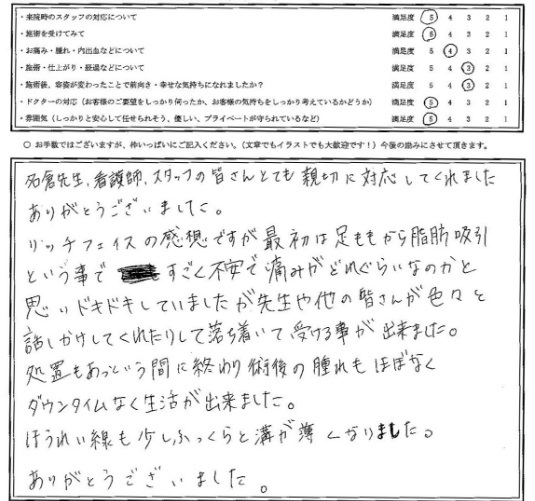 ・来院時のスタッフの対応について 満足度 5 4 3 2 1
・施術を受けてみて 満足度 5 4 3 2 1
・お痛み・腫れ・内出血などについて 満足度 5 4 3 2 1
・施術・仕上がり・経過などについて 満足度 5 4 3 2 1
・施術後、容姿が変わったことで前向き・幸せな気持ちになれましたか? 満足度 5 4 3 2 1
・ドクターの対応（お客様のご要望をしっかり伺ったか、お客様の気持ちをしっかり考えているかどうか） 満足度 5 4 3 2 1
・雰囲気（しっかりと安心して任せられそう、優しい、プライベートが守られているなど） 満足度 5 4 3 2 1
○ お手数ではございますが、枠いっぱいにご記入ください。（文章でもイラストでも大歓迎です！）今後の励みにさせて頂きます。
名倉先生、看護師、スタッフの皆さんとても親切に対応してくれました
ありがとうございました。
リッチフェイスの感想ですが最初は足ももから脂肪吸引
という事ですごく不安で痛みがどれぐらいなのかと
思いドキドキしていましたが先生や他の皆さんが色々と
話しかけしてくれたりして落ち着いて受ける事が出来ました。
処置もあっという間に終わり術後の腫れもほぼなく
ダウンタイムなく生活が出来ました。
ほうれい線も少しふっくらと溝が薄くなりました。
ありがとうございました。